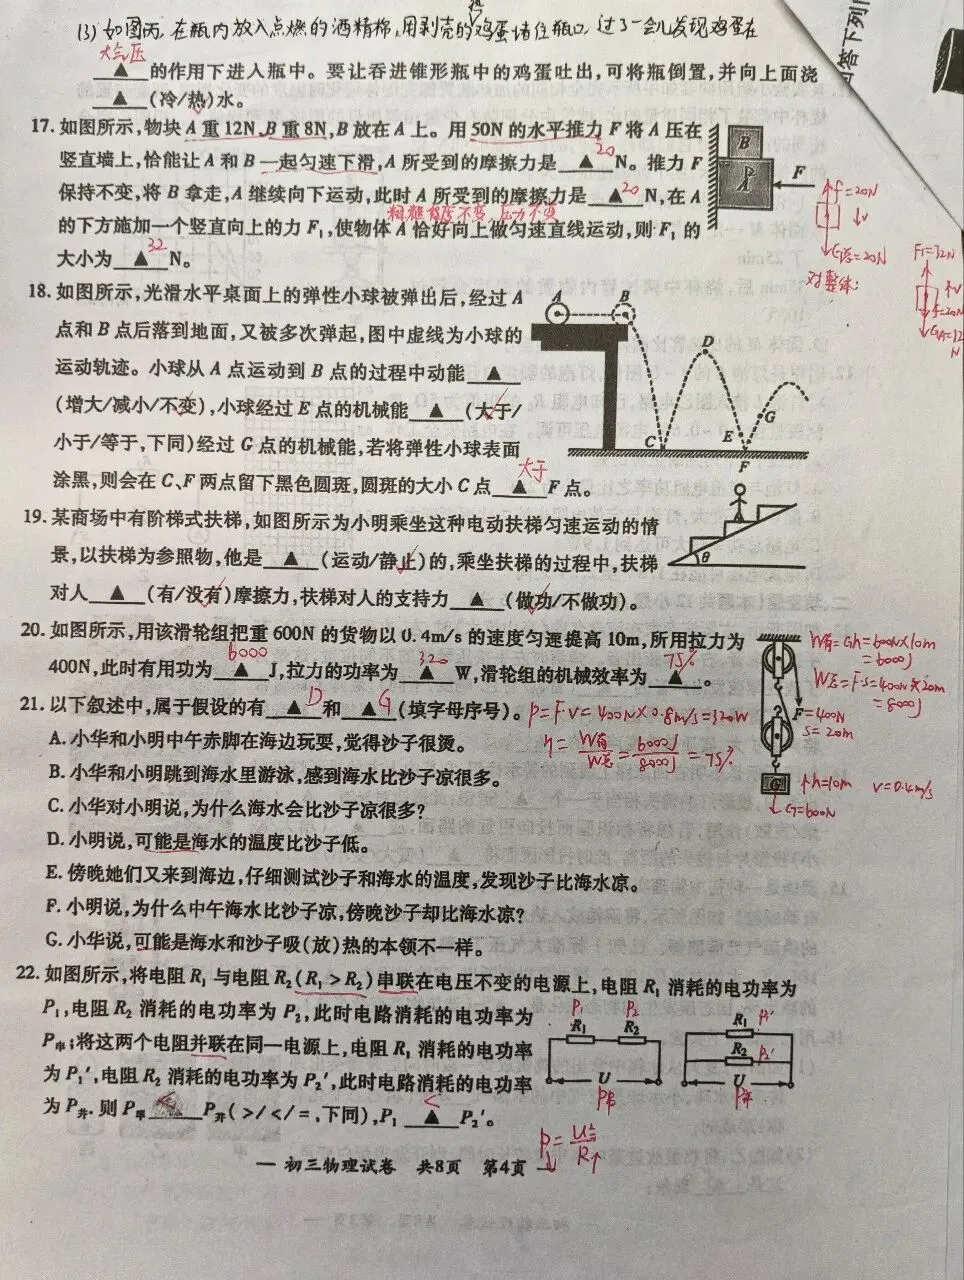 (3) 如图丙,在瓶内放入点燃的酒精棉,用剥壳的热鸡蛋堵住瓶口,过了一会儿发现鸡蛋在
大气压
▲ 的作用下进入瓶中。要让吞进锥形瓶中的鸡蛋吐出,可将瓶倒置,并向上面浇
▲ (冷/热)水。
17. 如图所示,物块 A 重 12N、B 重 8N,B 放在 A 上。用 50N 的水平推力 F 将 A 压在
竖直墙上,恰能让 A 和 B 一起匀速下滑,A 所受到的摩擦力是 ▲ 20 N。推力 F
保持不变,将 B 拿走,A 继续向下运动,此时 A 所受到的摩擦力是 ▲ 20 N,在 A
粗糙程度不变,压力不变
的下方施加一个竖直向上的力 F₁,使物体 A 恰好向上做匀速直线运动,则 F₁ 的
大小为 ▲ 32 N。
B
A
F
f=20N
v
G总=20N
对整体:
F₁=32N
v
f=20N
GA=12N
18. 如图所示,光滑水平桌面上的弹性小球被弹出后,经过 A
点和 B 点后落到地面,又被多次弹起,图中虚线为小球的
运动轨迹。小球从 A 点运动到 B 点的过程中动能 ▲
(增大/减小/不变),小球经过 E 点的机械能 ▲ (大于/
小于/等于,下同)经过 G 点的机械能,若将弹性小球表面
涂黑,则会在 C、F 两点留下黑色圆斑,圆斑的大小 C 点 ▲ 大于 F 点。
A
B
D
G
E
C
F
19. 某商场中有阶梯式扶梯,如图所示为小明乘坐这种电动扶梯匀速运动的情
景,以扶梯为参照物,他是 ▲ (运动/静止)的,乘坐扶梯的过程中,扶梯
对人 ▲ (有/没有)摩擦力,扶梯对人的支持力 ▲ (做功/不做功)。
θ
20. 如图所示,用该滑轮组把重 600N 的货物以 0.4m/s 的速度匀速提高 10m,所用拉力为
400N,此时有用功为 ▲ 6000 J,拉力的功率为 ▲ 320 W,滑轮组的机械效率为 ▲ 75% 。
W有=Gh=600N×10m
=6000J
W总=F·S=400N×20m
=8000J
F=400N
S=20m
G
h=10m
v=0.4m/s
G=600N
P=F·V=400N×0.8m/s=320W
η=W有/W总=6000J/8000J=75%
21. 以下叙述中,属于假设的有 ▲ D 和 ▲ G (填字母序号)。
A. 小华和小明中午赤脚在海边玩耍,觉得沙子很烫。
B. 小华和小明跳到海水里游泳,感到海水比沙子凉很多。
C. 小华对小明说,为什么海水会比沙子凉很多?
D. 小明说,可能是海水的温度比沙子低。
E. 傍晚她们又来到海边,仔细测试沙子和海水的温度,发现沙子比海水凉。
F. 小明说,为什么中午海水比沙子凉,傍晚沙子却比海水凉?
G. 小华说,可能是海水和沙子吸(放)热的本领不一样。
22. 如图所示,将电阻 R₁ 与电阻 R₂(R₁>R₂)串联在电压不变的电源上,电阻 R₁ 消耗的电功率为
P₁,电阻 R₂ 消耗的电功率为 P₂,此时电路消耗的电功率为
P串;将这两个电阻并联在同一电源上,电阻 R₁ 消耗的电功率
为 P₁′,电阻 R₂ 消耗的电功率为 P₂′,此时电路消耗的电功率
为 P并. 则 P串 ▲ P并(>/</=,下同),P₁ ▲ < P₂′。
P₁ P₂
R₁ R₂
U
P串
R₁ P₁′
R₂ P₂′
U
P并
P=U²/R
— 初三物理试卷 共8页 第4页 —
答下列